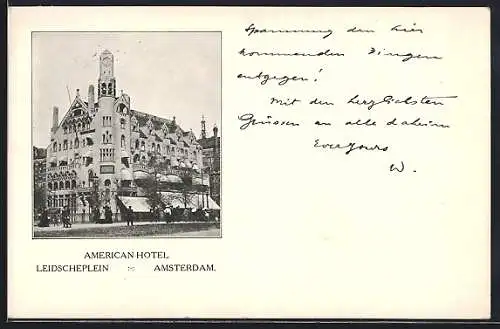 Spannung den hier
kommenden Dingen
entgegen!
Mit den herzlichsten
Grüssen an alle daheim
Ever yours
W.
AMERICAN-HOTEL
LEIDSCHEPLEIN :-: AMSTERDAM.